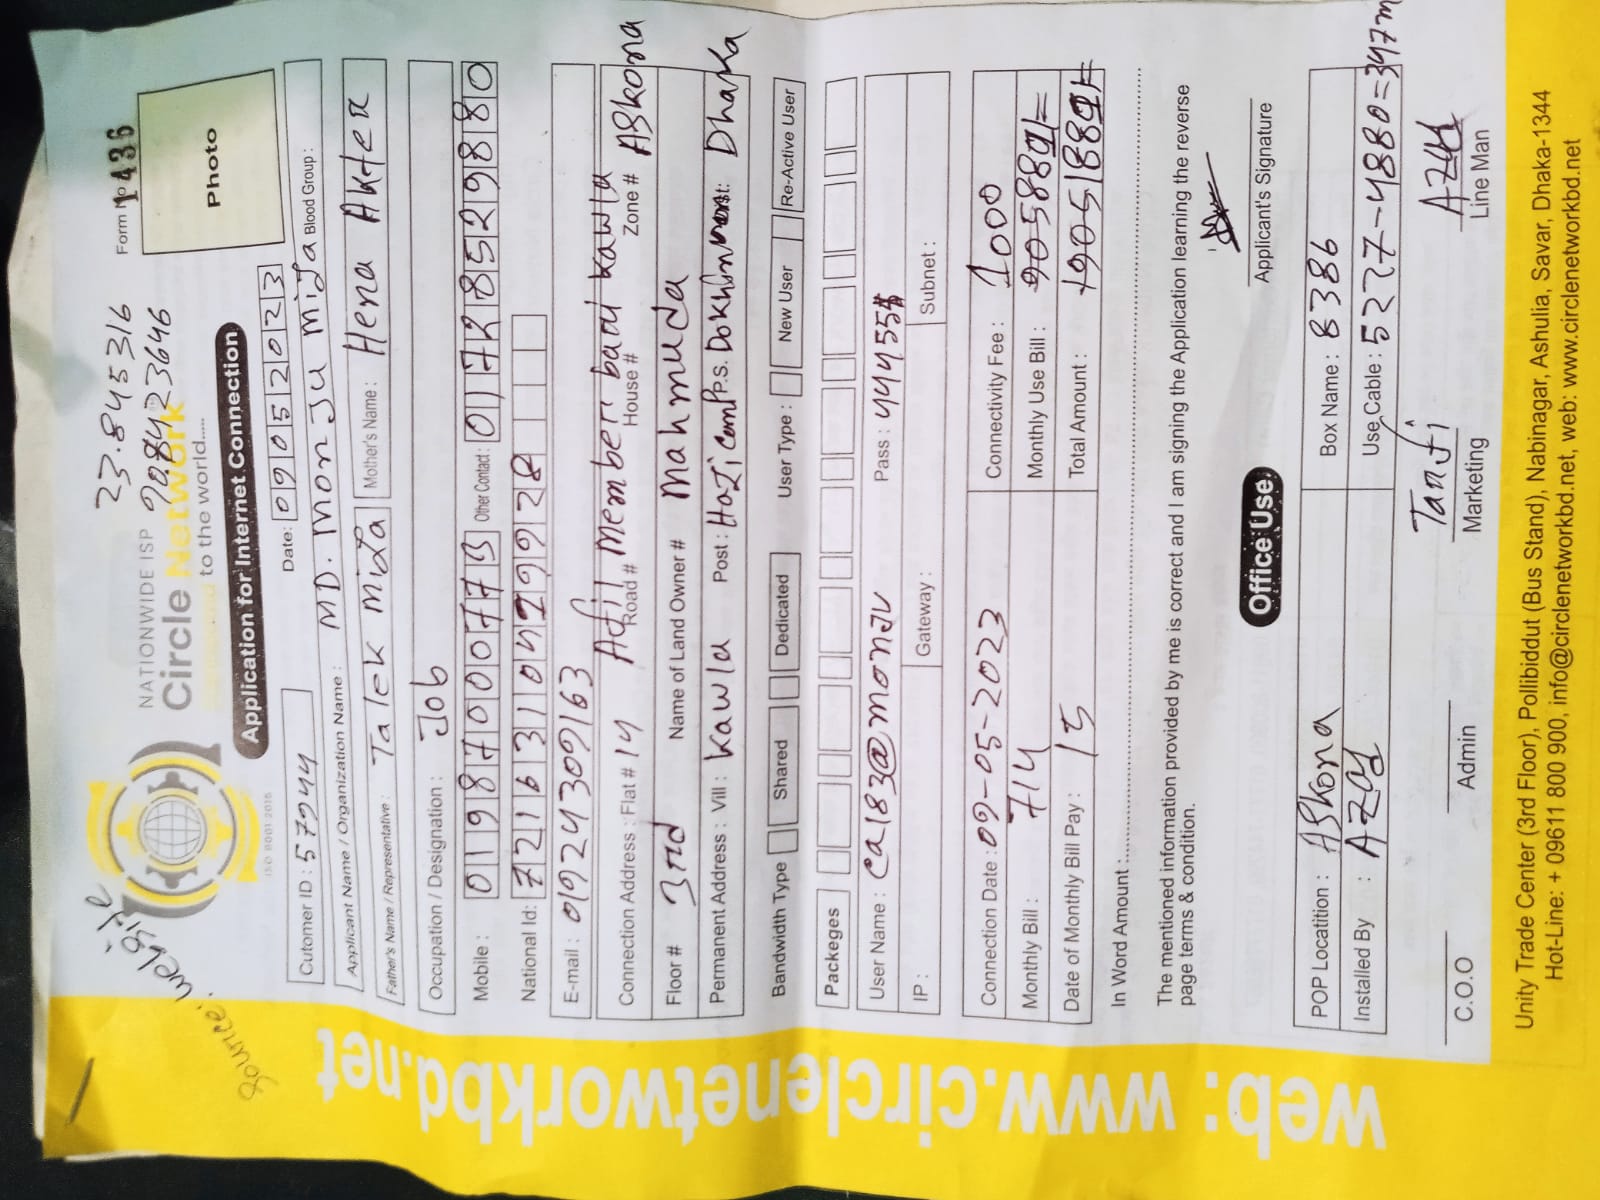 Source: website
23.845316
90.8423646
Form No 1436
NATIONWIDE ISP
Circle Network
to the world.....
ISO 9001:2015
Photo
Application for Internet Connection
Cutomer ID : 57944
Date: 09052023
Applicant Name / Organization Name : MD. Monju mida
Blood Group :
Father's Name / Representative : Talek mida
Mother's Name : Hena Akter
Occupation / Designation : Job
Mobile : 01987000773
Other Contact: 01728529880
National Id: 7216310429928
E-mail : 01924309163
Connection Address : Flat # 14 Road # House # Zone # Askona
Member bari kawla
Floor # 3rd Name of Land Owner # Mahmuda
Permanent Address : Vill : kawla Post : Hazi Camp P.s. Dokhin Dist: Dhaka
Bandwidth Type Shared Dedicated User Type : New User Re-Active User
Packeges
User Name : ca183@monju Pass : 444555
IP : Gateway : Subnet :
Connection Date : 09-05-2023 Connectivity Fee : 1000
Monthly Bill : 714 Monthly Use Bill :
Date of Monthly Bill Pay : 15 Total Amount :
In Word Amount :
The mentioned information provided by me is correct and I am signing the Application learning the reverse
page terms & condition.
Applicant's Signature
Office Use
POP Locatition : Askona Box Name : 8386
Installed By : Azad Use Cable : 5227-4880=347m
Tanfi Azad
C.O.O Admin Marketing Line Man
Unity Trade Center (3rd Floor), Pollibiddut (Bus Stand), Nabinagar, Ashulia, Savar, Dhaka-1344
Hot-Line: + 09611 800 900, info@circlenetworkbd.net, web: www.circlenetworkbd.net
web: www.circlenetworkbd.net